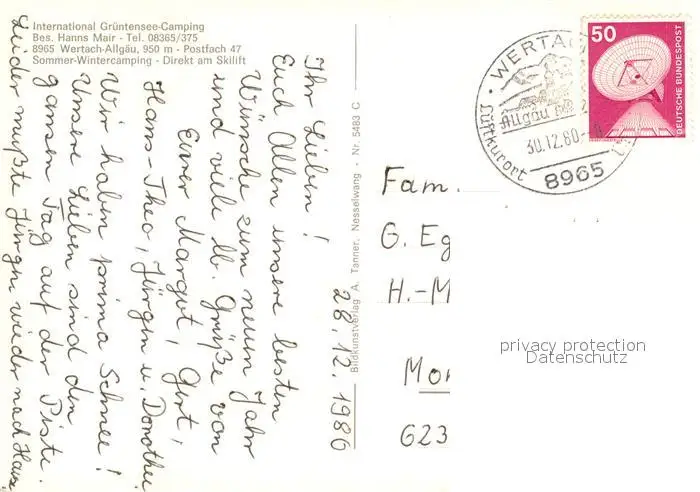 International Grüntensee-Camping
Bes. Hanns Mair - Tel. 08365/375
8965 Wertach-Allgäu, 950 m - Postfach 47
Sommer-Wintercamping - Direkt am Skilift
28.12.1986
Ihr Lieben!
Euch Allen unsere besten
Wünsche zum neuen Jahr
und viele lb. Grüße von
Eurer Margut, Gert,
Hans-Theo, Jürgen u. Dorothee
Wir haben prima Schnee!
Unsere Lieben sind den
ganzen Tag auf der Piste.
Leider mußte Jürgen wieder nach Haus
Bildkunstverlag A. Tanner, Nesselwang · Nr. 5483 C
WERTACH
Allgäu
30.12.80
Luftkurort
8965
50
DEUTSCHE BUNDESPOST
Fam.
G. Eg
H.-M
Mor
623
privacy protection
Datenschutz